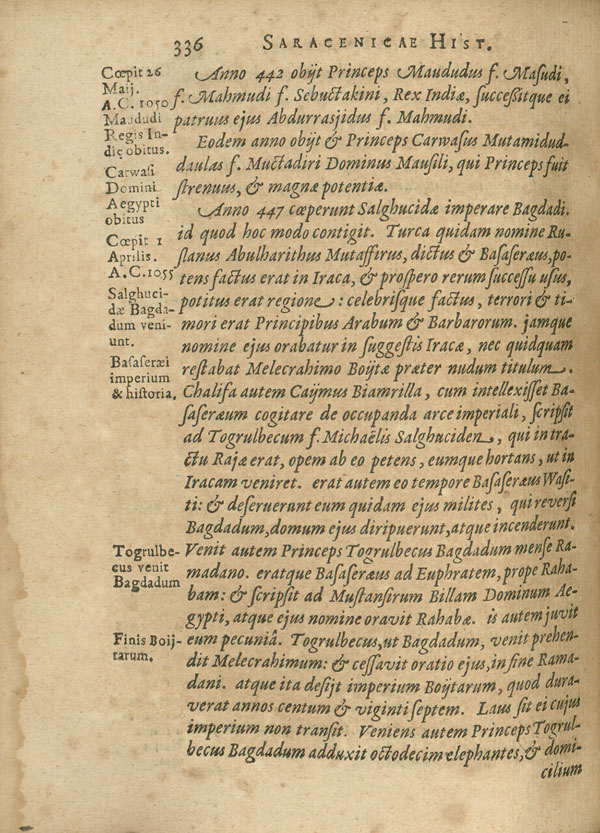 336 SARACENICAE HIST.
Cœpit 26
Maij.
A.C. 1050
Maududi
Regis In-
dię obitus.
Carwasi
Domini
Aegypti
obitus
Cœpit 1
Aprilis.
A.C. 1055
Salghuci-
dæ Bagda-
dum veni-
unt.
Basaseræi
imperium
& historia.
Togrulbe-
cus venit
Bagdadum
Finis Boij-
tarum.
Anno 442 obijt Princeps Maududus f. Masudi,
f. Mahmudi f. Sebuctakini, Rex Indiæ, successitque ei
patruus ejus Abdurrasjidus f. Mahmudi.
Eodem anno obijt & Princeps Carwasus Mutamidud-
daulas f. Muctadiri Dominus Mausili, qui Princeps fuit
strenuus, & magnæ potentiæ.
Anno 447 cœperunt Salghucidæ imperare Bagdadi.
id quod hoc modo contigit. Turca quidam nomine Ru-
slanus Abulharithus Mutaffirus, dictus & Basaseræus, po-
tens factus erat in Iraca, & prospero rerum successu usus,
potitus erat regione: celebrisque factus, terrori & ti-
mori erat Principibus Arabum & Barbarorum. jamque
nomine ejus orabatur in suggestis Iracæ, nec quidquam
restabat Melecrahimo Boijtæ præter nudum titulum.
Chalifa autem Caijmus Biamrilla, cum intellexisset Ba-
saseræum cogitare de occupanda arce imperiali, scripsit
ad Togrulbecum f. Michaëlis Salghuciden, qui in tra-
ctu Rajæ erat, opem ab eo petens, eumque hortans, ut in
Iracam veniret. erat autem eo tempore Basaseræus Wasi-
ti: & deseruerunt eum quidam ejus milites, qui reversi
Bagdadum, domum ejus diripuerunt, atque incenderunt.
Venit autem Princeps Togrulbecus Bagdadum mense Ra-
madano. eratque Basaseræus ad Euphratem, prope Raha-
bam: & scripsit ad Mustansirum Billam Dominum Ae-
gypti, atque ejus nomine oravit Rahabæ. is autem juvit
eum pecuniâ. Togrulbecus, ut Bagdadum, venit prehen-
dit Melecrahimum: & cessavit oratio ejus, in fine Rama-
dani. atque ita desijt imperium Boijtarum, quod dura-
verat annos centum & viginti septem. Laus sit ei cujus
imperium non transit. Veniens autem Princeps Togrul-
becus Bagdadum adduxit octodecim elephantes, & domi-
cilium